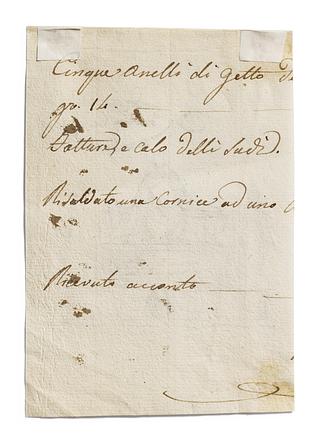 Cinque anelli di getto de
gr. 14.
Fatture, e calo delli Sud.i.
Risaldato una Cornice ad uno
Ricevuto acconto